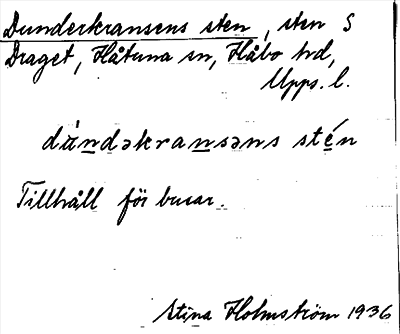 Dunderkransens sten, sten S
Draget, Håtuna sn, Håbo hd,
Upps. l.
dúndəkransəns stén
Tillhåll för busar.
Stina Holmström 1936